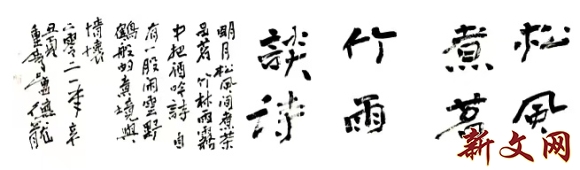 松風
煮茗
竹雨
談詩
明月松風间煮茶
品茗 竹林雨霧
中把酒吟詩 自
有一股闲雲野
鶴般的意境與
情懷
二零二一年辛
丑
重慶
新文网